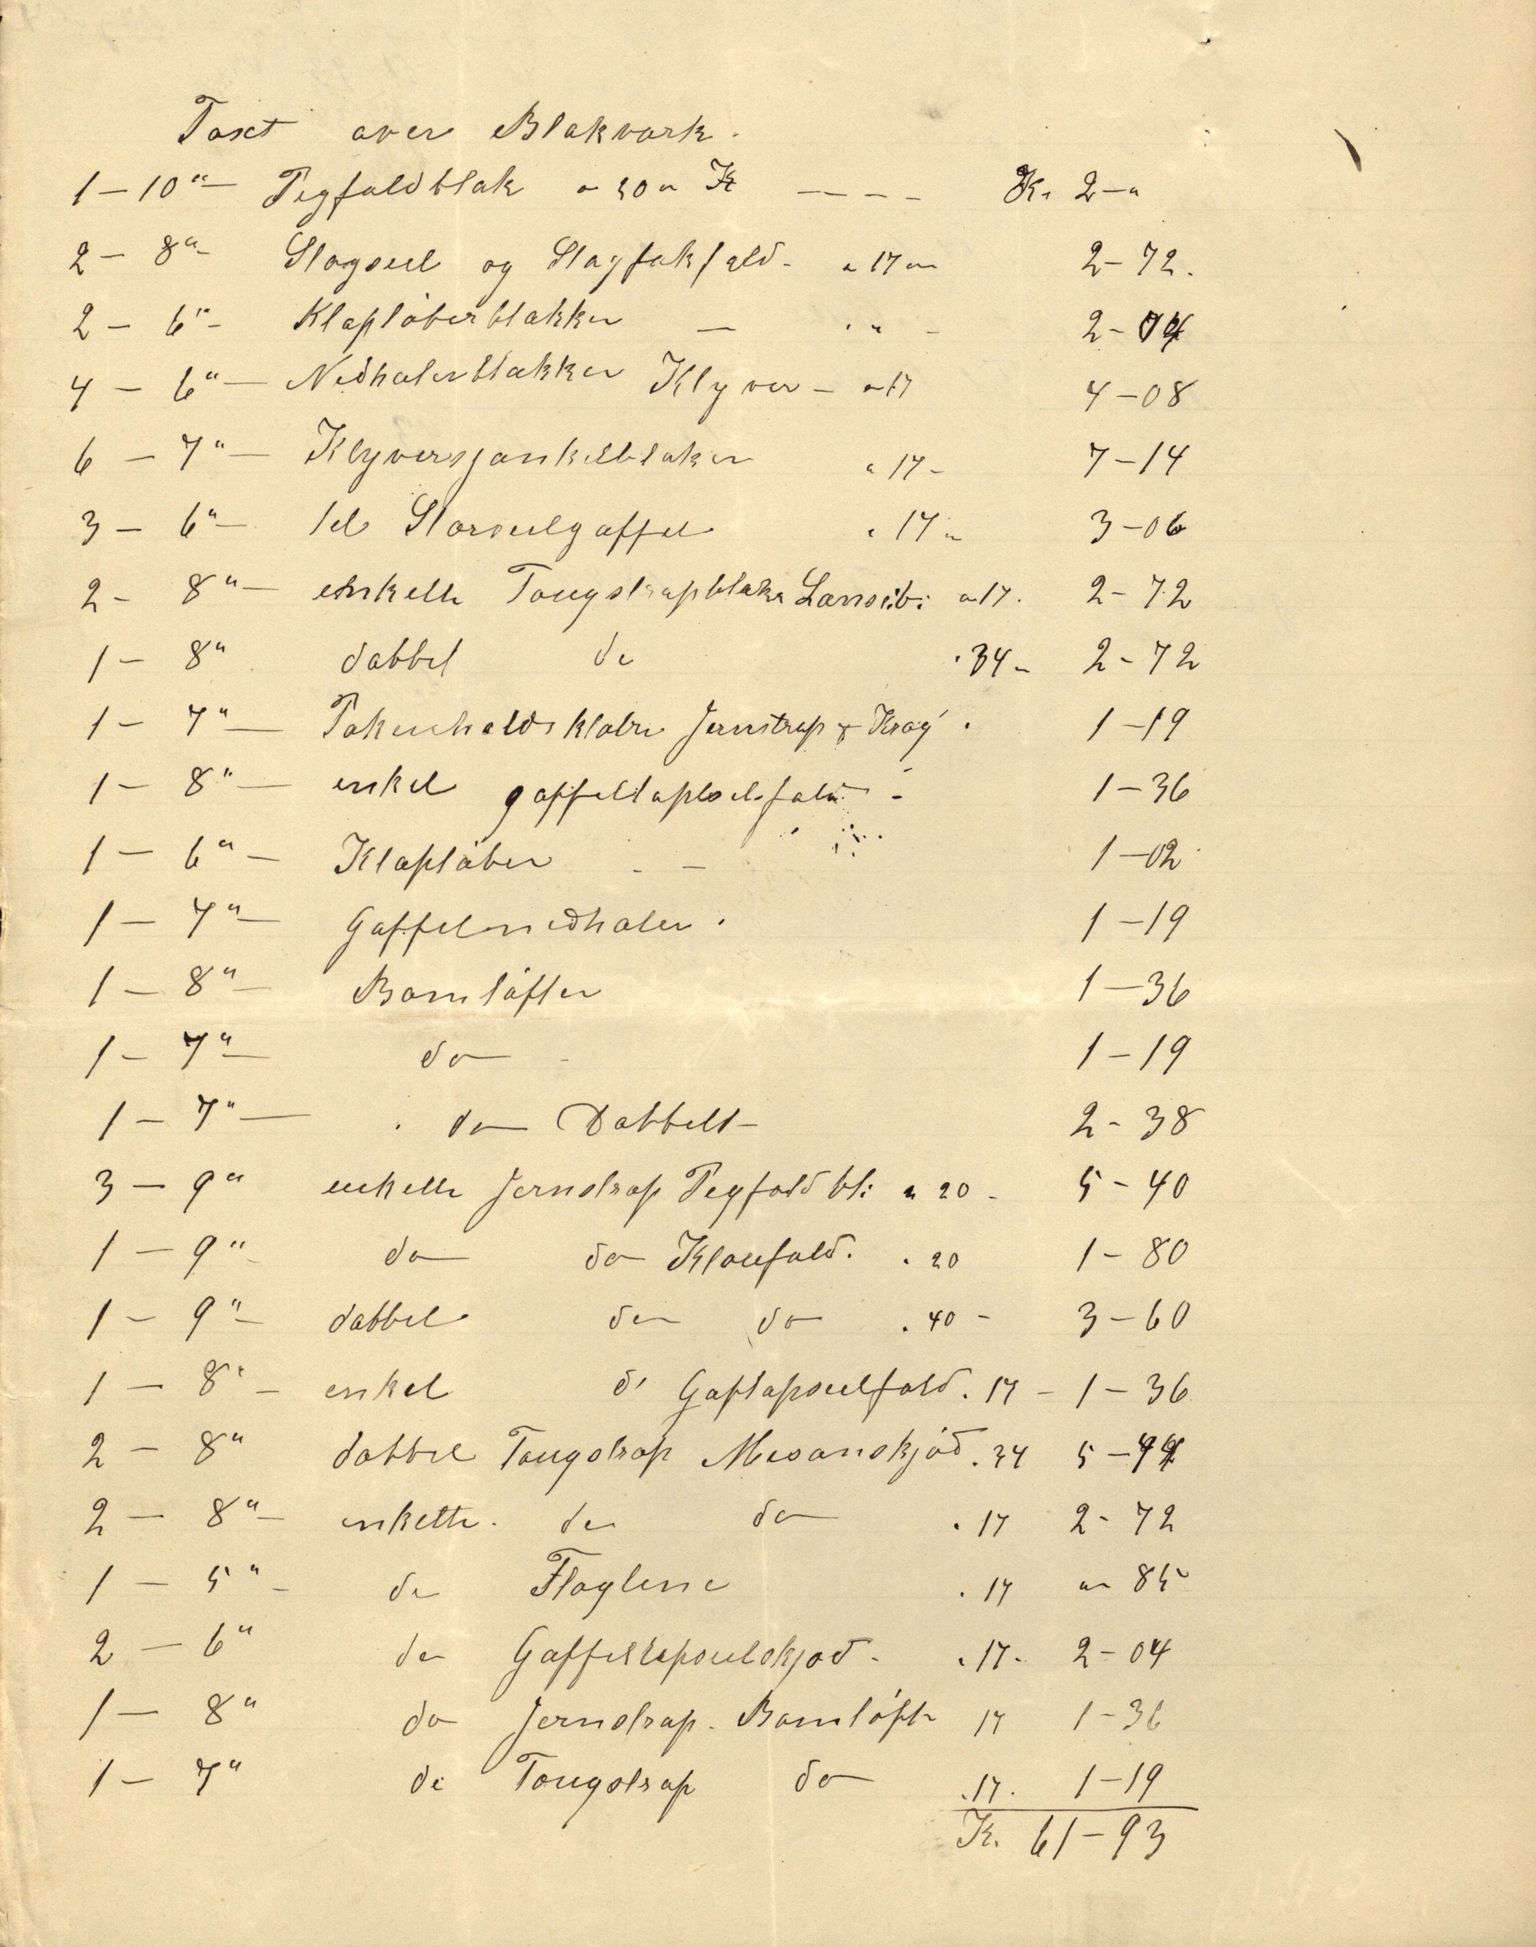 Taxt over Blokvark.
1 – 10" – Pegfaldblok a 20 " Kr – – – – Kr. 2 – "
2 – 8" – Stagseil og Stagfokfald – a 17 " 2 – 72.
2 – 6" – Klapløberblokker – " " – 2 – 04
4 – 6" – Nedhalerblokker Klyver – a 17 4 – 08
6 – 7" – Klyversjønkelbloker a 17 – 7 – 14
3 – 6" – til Storseilgaffel " 17 " 3 – 06
2 – 8" – enkelte Tougstrapbloke a 17. 2 – 72
1 – 8" dobbel do . 34 " 2 – 72
1 – 7" – Jernstrap & Krog . 1 – 19
1 – 8" – enkel gaffeltapseilsfald – 1 – 36
1 – 6" – Klapløber – – 1 – 02
1 – 7" – Gaffelnedhaler . 1 – 19
1 – 8" – Bomløfter 1 – 36
1 – 7" – do – 1 – 19
1 – 7" – . do Dobbelt – 2 – 38
3 – 9" enkelte Jernstrap Pegfald bl: a 20 – 5 – 40
1 – 9" – do do Kloufald. . 20 1 – 80
1 – 9" – dobbel do do . 40 – 3 – 60
1 – 8" – enkel do Gaftapseilfald . 17 – 1 – 36
2 – 8" dobbel Tougstrap Mesanskjød . 34 5 – 44
2 – 8" – enkelte. do do . 17 2 – 72
1 – 5" – do Flagline . 17 " 85
2 – 6" do Gaffeltapseilskjød – . 17 . 2 – 04
1 – 8" do Jernstrap. Bomløft 17 1 – 36
1 – 7" do Tougstrap do . 17 . 1 – 19
Kr. 61 – 93